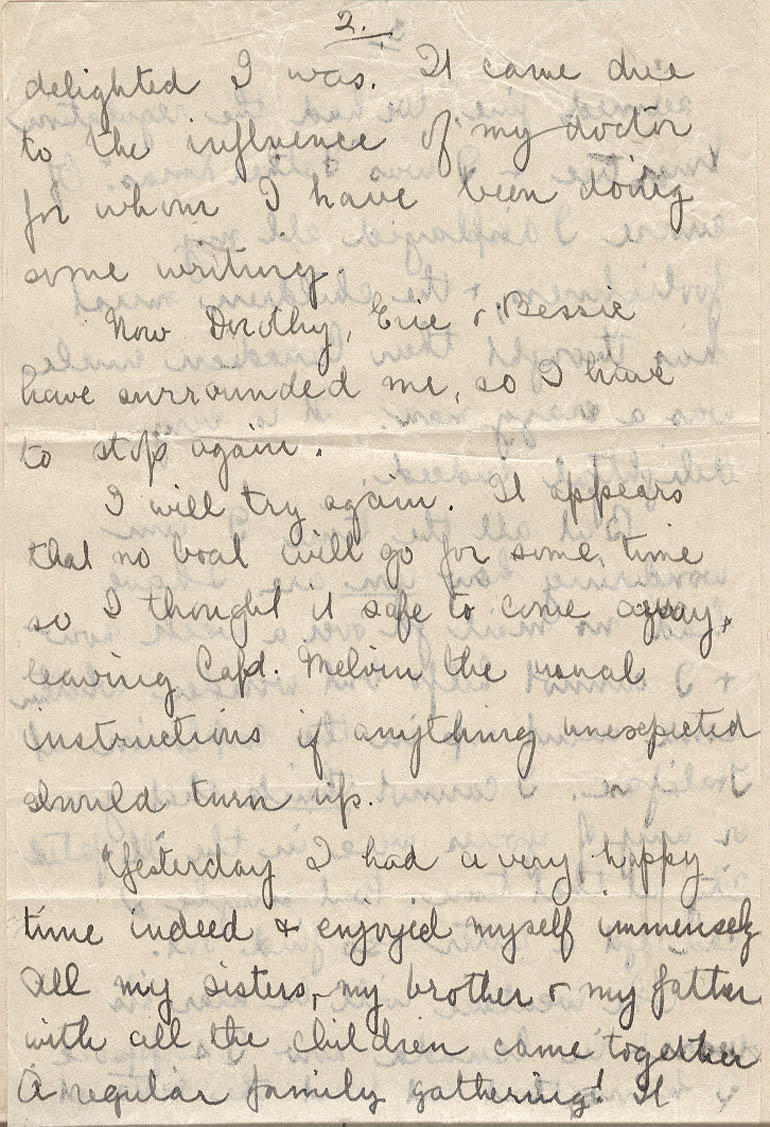 2.
delighted I was. It came due
to the influence of my doctor
for whom I have been doing
some writing.
Now Dorothy, Eric & Bessie
have surrounded me, so I have
to stop again.
I will try again. It appears
that no boat will go for some time
so I thought it safe to come away,
leaving Capt. Melvin the usual
instructions if anything unexpected
should turn up.
Yesterday I had a very happy
time indeed & enjoyed myself immensely
All my sisters, my brother & my father
with all the children came together
A regular family gathering! It